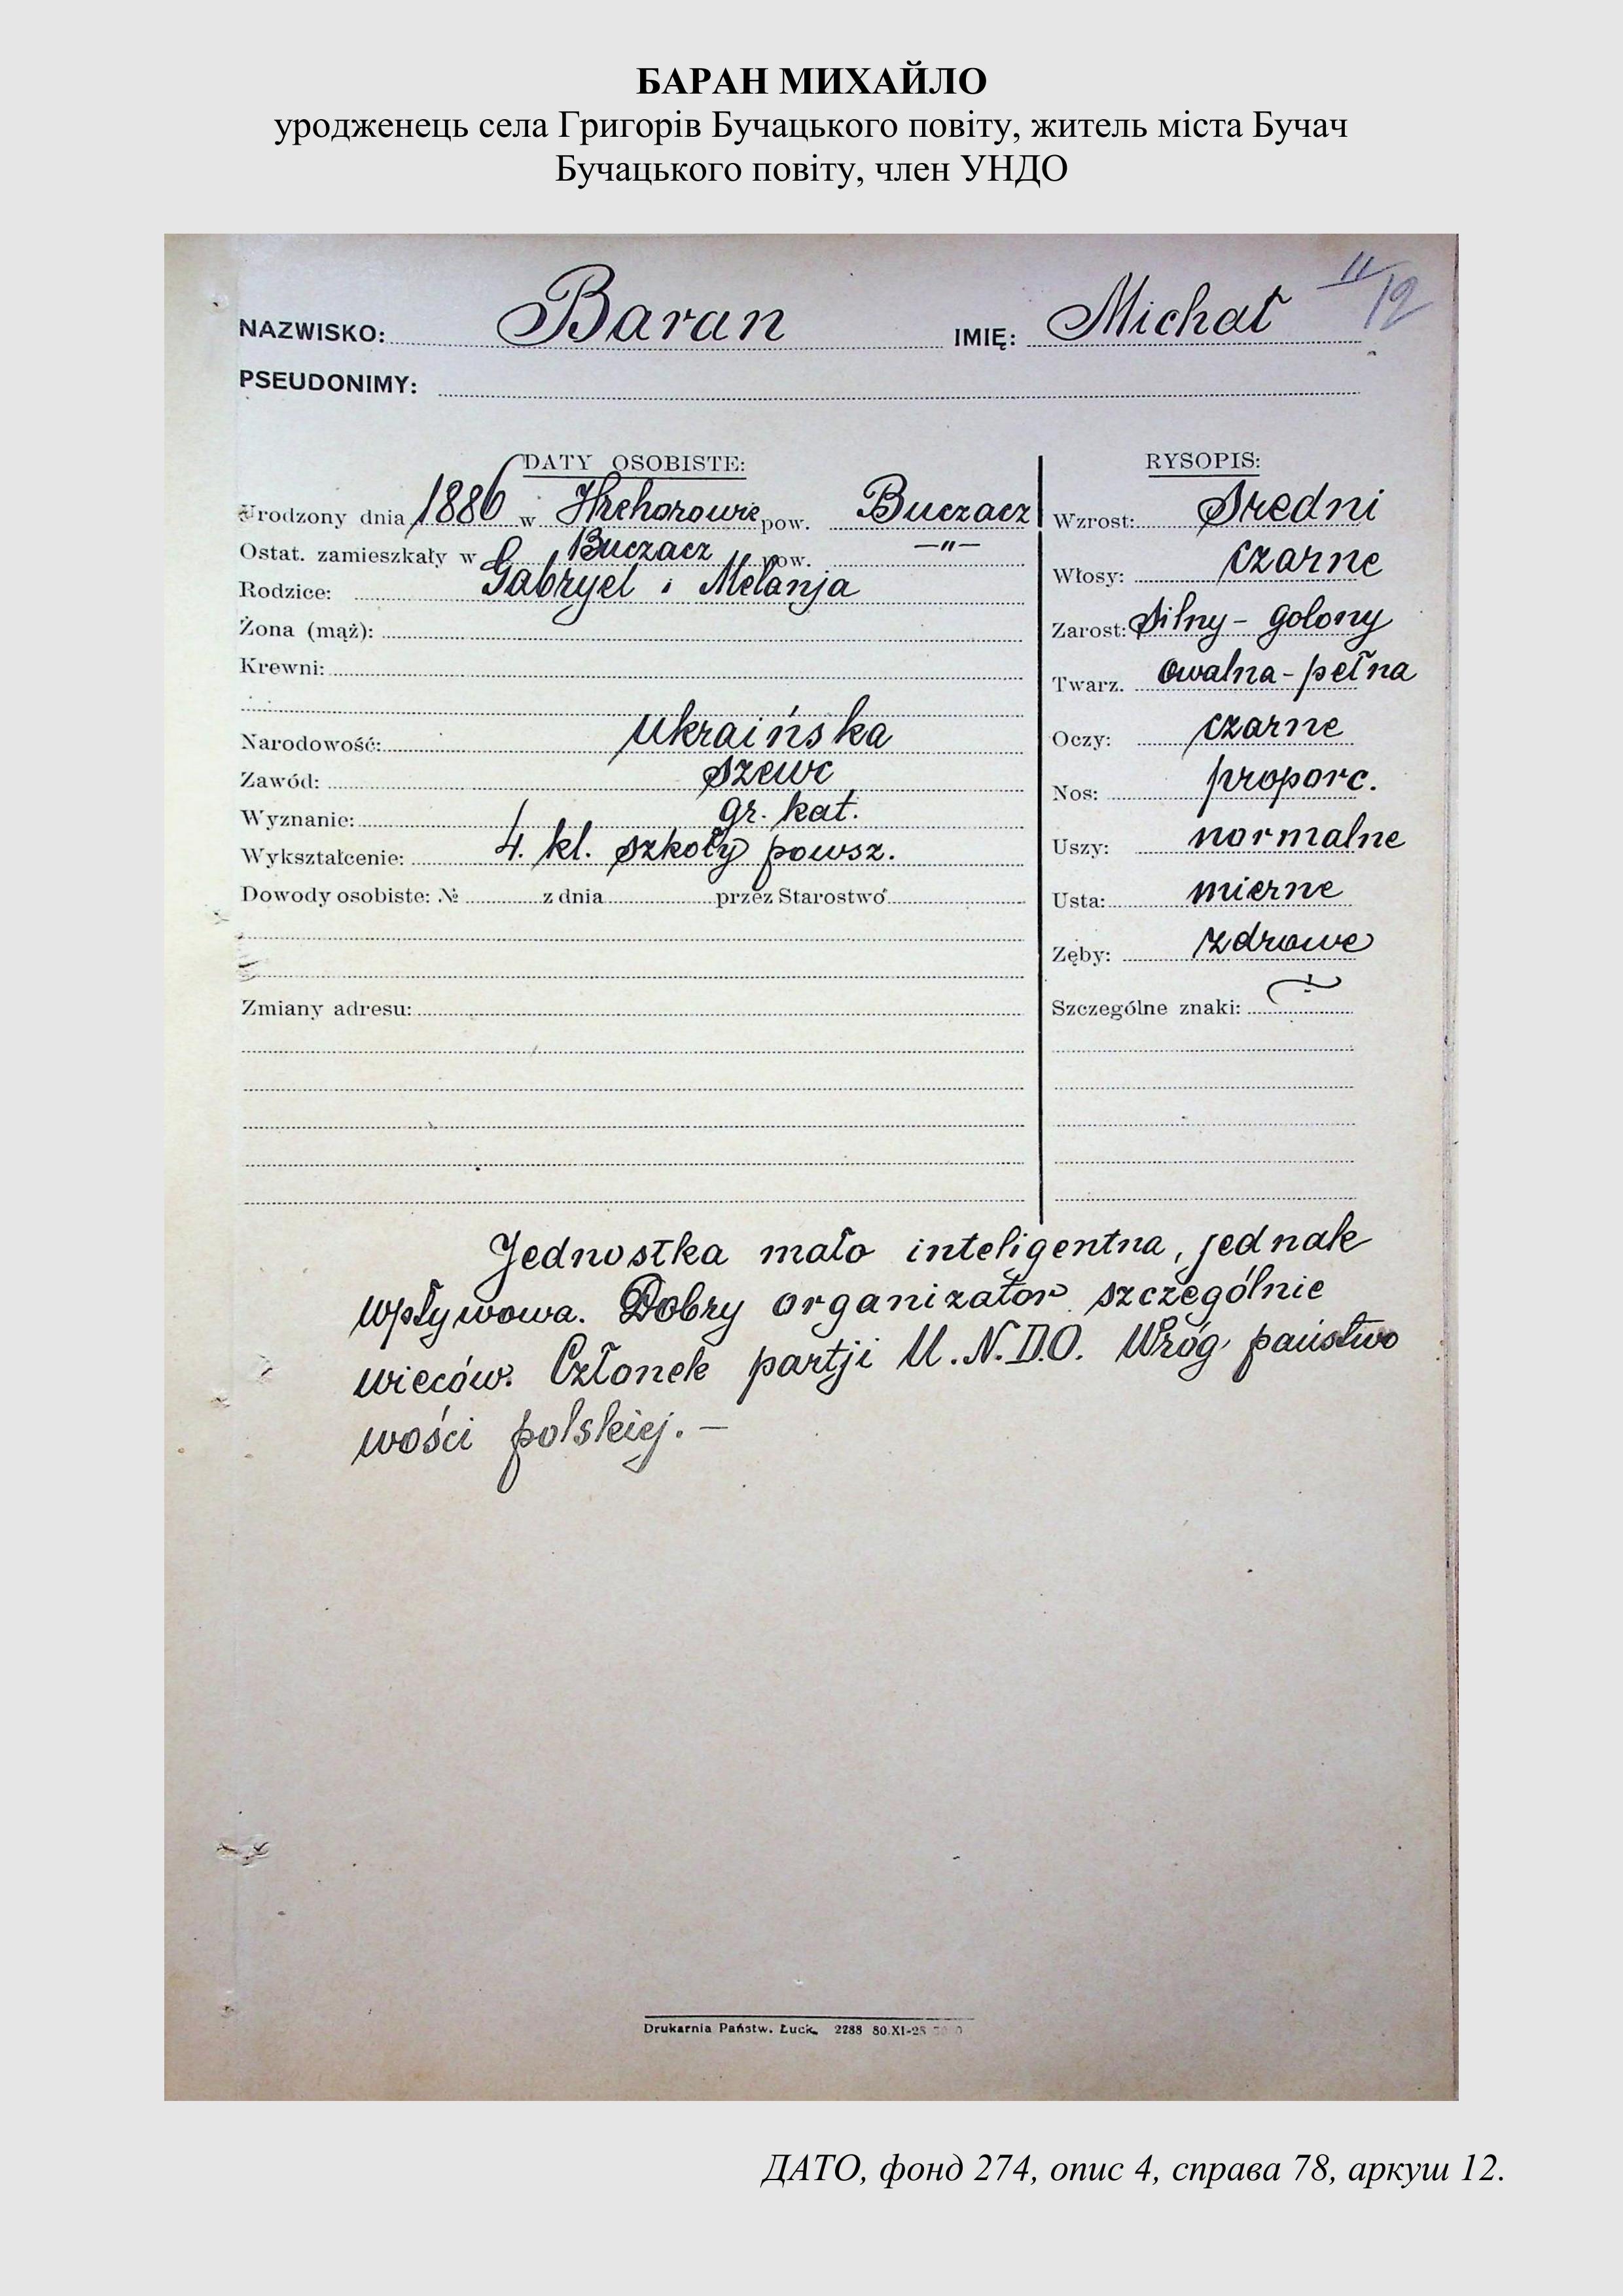 БАРАН МИХАЙЛО
уродженець села Григорів Бучацького повіту, житель міста Бучач
Бучацького повіту, член УНДО
11
12
NAZWISKO: Baran IMIĘ: Michał
PSEUDONIMY:
DATY OSOBISTE:
Urodzony dnia 1886 w Hrehorowie pow. Buczacz
Ostat. zamieszkały w Buczacz pow. —"—
Rodzice: Gabryel i Melanja
Żona (mąż):
Krewni:
Narodowość: ukraińska
Zawód: szewc
Wyznanie: gr. kat.
Wykształcenie: 4. kl. szkoły powsz.
Dowody osobiste: № z dnia przez Starostwo
Zmiany adresu:
RYSOPIS:
Wzrost: Sredni
Włosy: czarne
Zarost: Silny - golony
Twarz. owalna - pełna
Oczy: czarne
Nos: proporc.
Uszy: normalne
Usta: mierne
Zęby: zdrowe
Szczególne znaki:
Jednostka mało inteligentna, jednak
wpływowa. Dobry organizator szczególnie
wieców. Członek partji U.N.D.O. Wróg państwo
wości polskiej. —
Drukarnia Państw. Łuck, 2288 80.XI-28
ДАТО, фонд 274, опис 4, справа 78, аркуш 12.